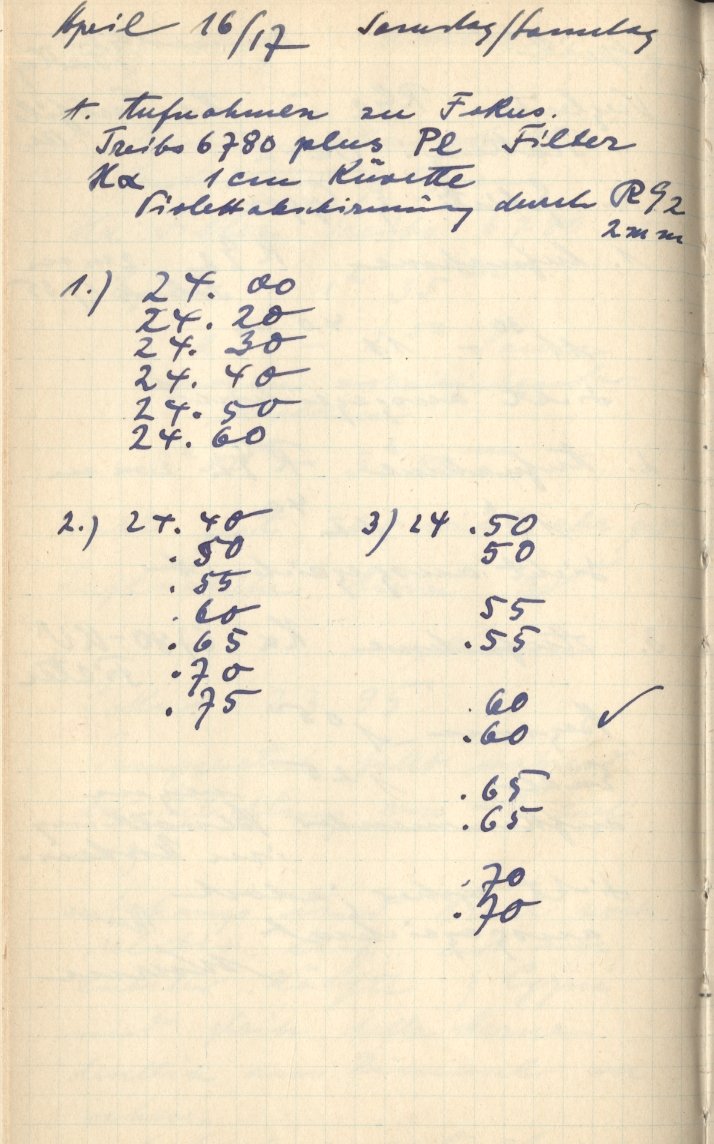 April 16/17 Samstag/Sonntag
A. Aufnahmen zu Fokus.
6780 plus Pl Filter
Hα 1cm Küvette
Violettabschirmung durch RG2
2mm
1.) 24.00
24.20
24.30
24.40
24.50
24.60
2.) 24.40
.50
.55
.60
.65
.70
.75
3) 24.50
50
55
.55
.60
.60
✓
.65
.65
.70
.70